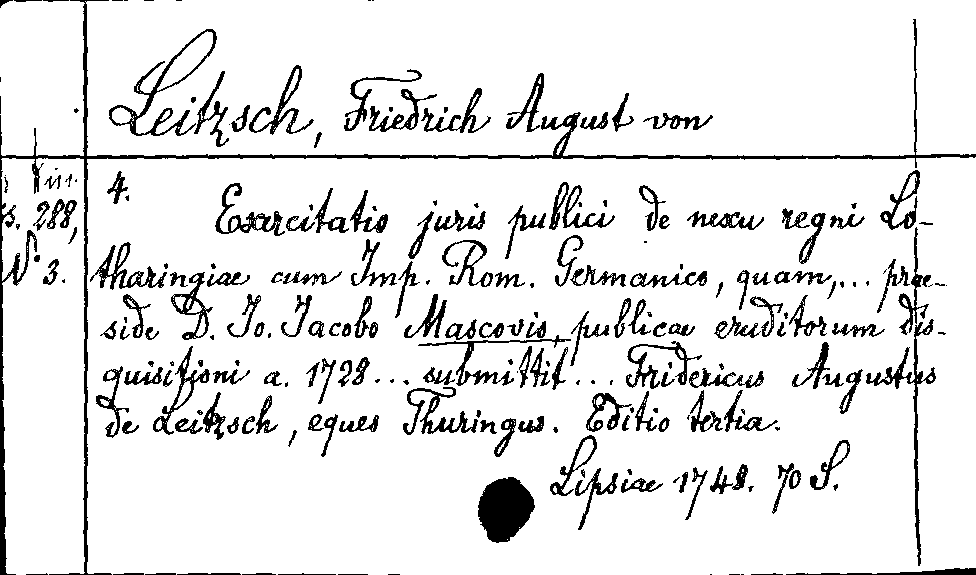 Leitzsch, Friedrich August von
4.
288,
N° 3.
Exercitatio juris publici de nexu regni Lo-
tharingiae cum Imp. Rom. Germanico, quam,... prae-
side D. Jo. Jacobo Mascovio, publicae eruditorum dis-
quisitioni a. 1728... submittit... Fridericus Augustus
de Leitzsch, eques Thuringus. Editio tertia.
Lipsiae 1748. 70 S.